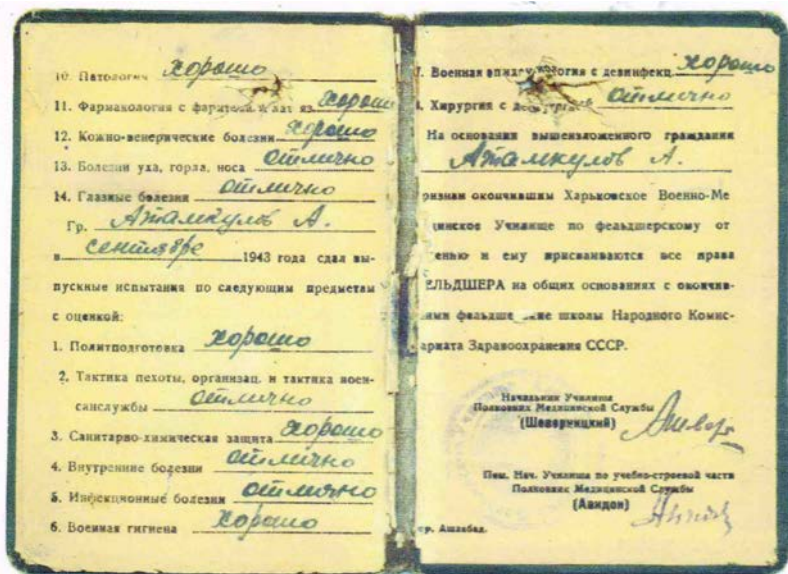 10. Патология хорошо
11. Фармакология с лат яз. хорошо
12. Кожно-венерические болезни хорошо
13. Болезни уха, горла, носа отлично
14. Глазные болезни отлично
Гр. Атамкулов А.
в сентябре 1943 года сдал вы-
пускные испытания по следующим предметам
с оценкой:
1. Политподготовка хорошо
2. Тактика пехоты, организац. и тактика воен-
санслужбы отлично
3. Санитарно-химическая защита хорошо
4. Внутренние болезни отлично
5. Инфекционные болезни отлично
6. Военная гигиена хорошо
7. Военная эпидемиология с дезинфекц. хорошо
8. Хирургия с отлично
На основании вышеизложенного гражданин
Атамкулов А.
признан окончившим Харьковское Военно-Ме
цинское Училище по фельдшерскому от
ению и ему присваиваются все права
ЕЛЬДШЕРА на общих основаниях с окончив-
ими фельдше ские школы Народного Комис-
ариата Здравоохранения СССР.
Начальник Училища
Полковник Медицинской Службы
(Шеверницкий)
Пом. Нач. Училища по учебно-строевой части
Полковник Медицинской Службы
(Авидон)
ор. Ашхабад.